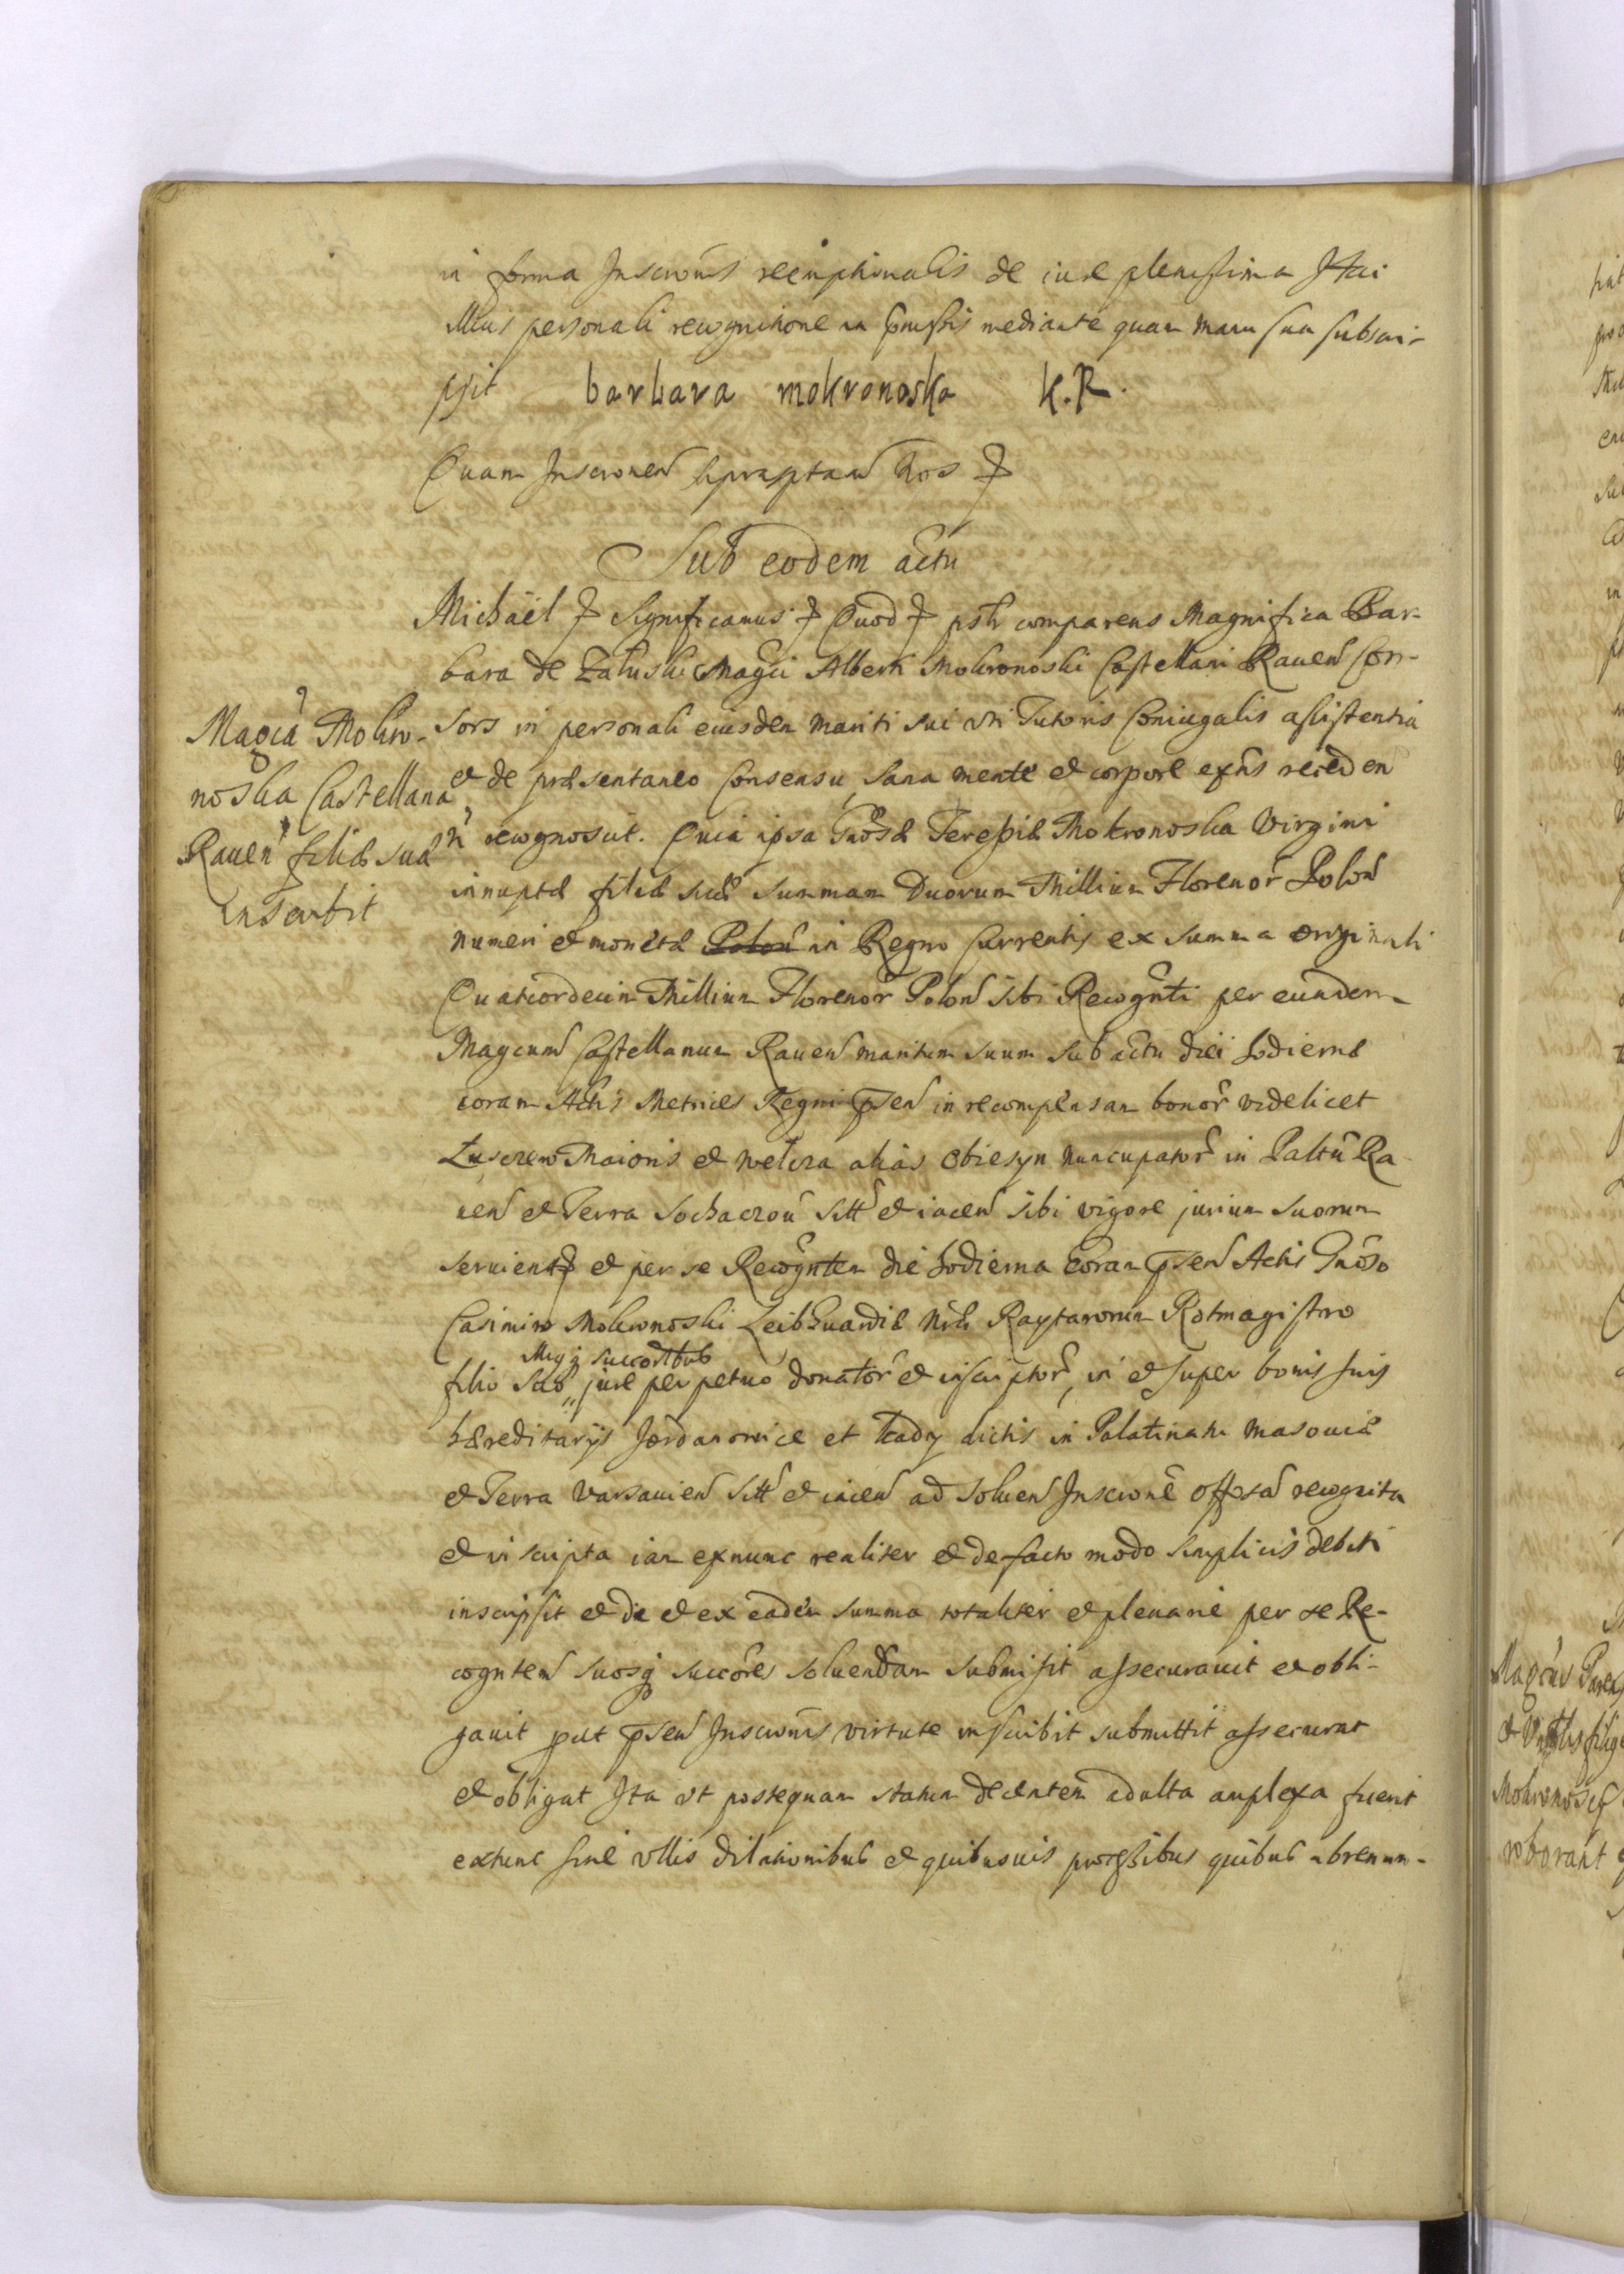 in forma Inscrōnis reemptionalis de iure plenissima Ittai
Mus personali recognitione in pmissis mediante quam manu sua subscri-
psit barbara mokronoska K.R.
Quam Inscronem supraptam Nos
Sub eodem actu
Michael Significamus Quod psłr comparens Magnifica Bar-
bara de Załuski Magci Alberti Mokronoski Castellani Raven Con-
sors in personali eiusdem mariti sui uti Tutoris Coniugalis assistentia
et de præsentaneo Consensu, sana mente et corpore exñs reced en
recognovit. Quia ipsa Gnosæ Teressiæ Mokronoska Virgini
innuptæ filiæ suæ summam Duorum Millium Florenor Polon
numeri et monetæ Polon in Regno Currentis ex summa originali
Quatuordecim Millium Florenor Polon sibi Recognti per eundem
Magcum Castellanum Raven maritum suum sub actu diei hodiernæ
coram Actis Metrices Regni psen in recompensam bonor videlicet
Maioris et welcza alias Obiesyn nuncupator in Paltu Ra
ven et Terra Sochaczov sitt et iacen sibi vigore jurium suorum
servient et per se Recognten die hodierna coram psen Actis Gnoso
Casimiro Mokronoski Leibguardiæ Raytarorum Rotmagistro
filio suo eiusq succoribus jure perpetuo donator et inscriptor, in et super bonis suis
hæreditarijs Jordanowice et Kady dictis in Palatinatu Masoviæ
et Terra Varsavien sitt et iacen ad solven Inscrone recognita
et inscripta iam exnunc realiter et de facto modo simplicis debiti
inscripsit et de et ex eadem summa totaliter et plenarie per se Re-
cognten suosq succores solvendam submisit assecuravit et obli-
gavit put psen Inscronis virtute inscribit submittit assecurat
et obligat Ita ut postquam statum decentem adulta amplexa fuerit
extunc sine ullis dilationibus et quibusuis processibus quibus abrenun-
Magca Mokro-
noska Castellana
Raven filiæ suæ
inscribit